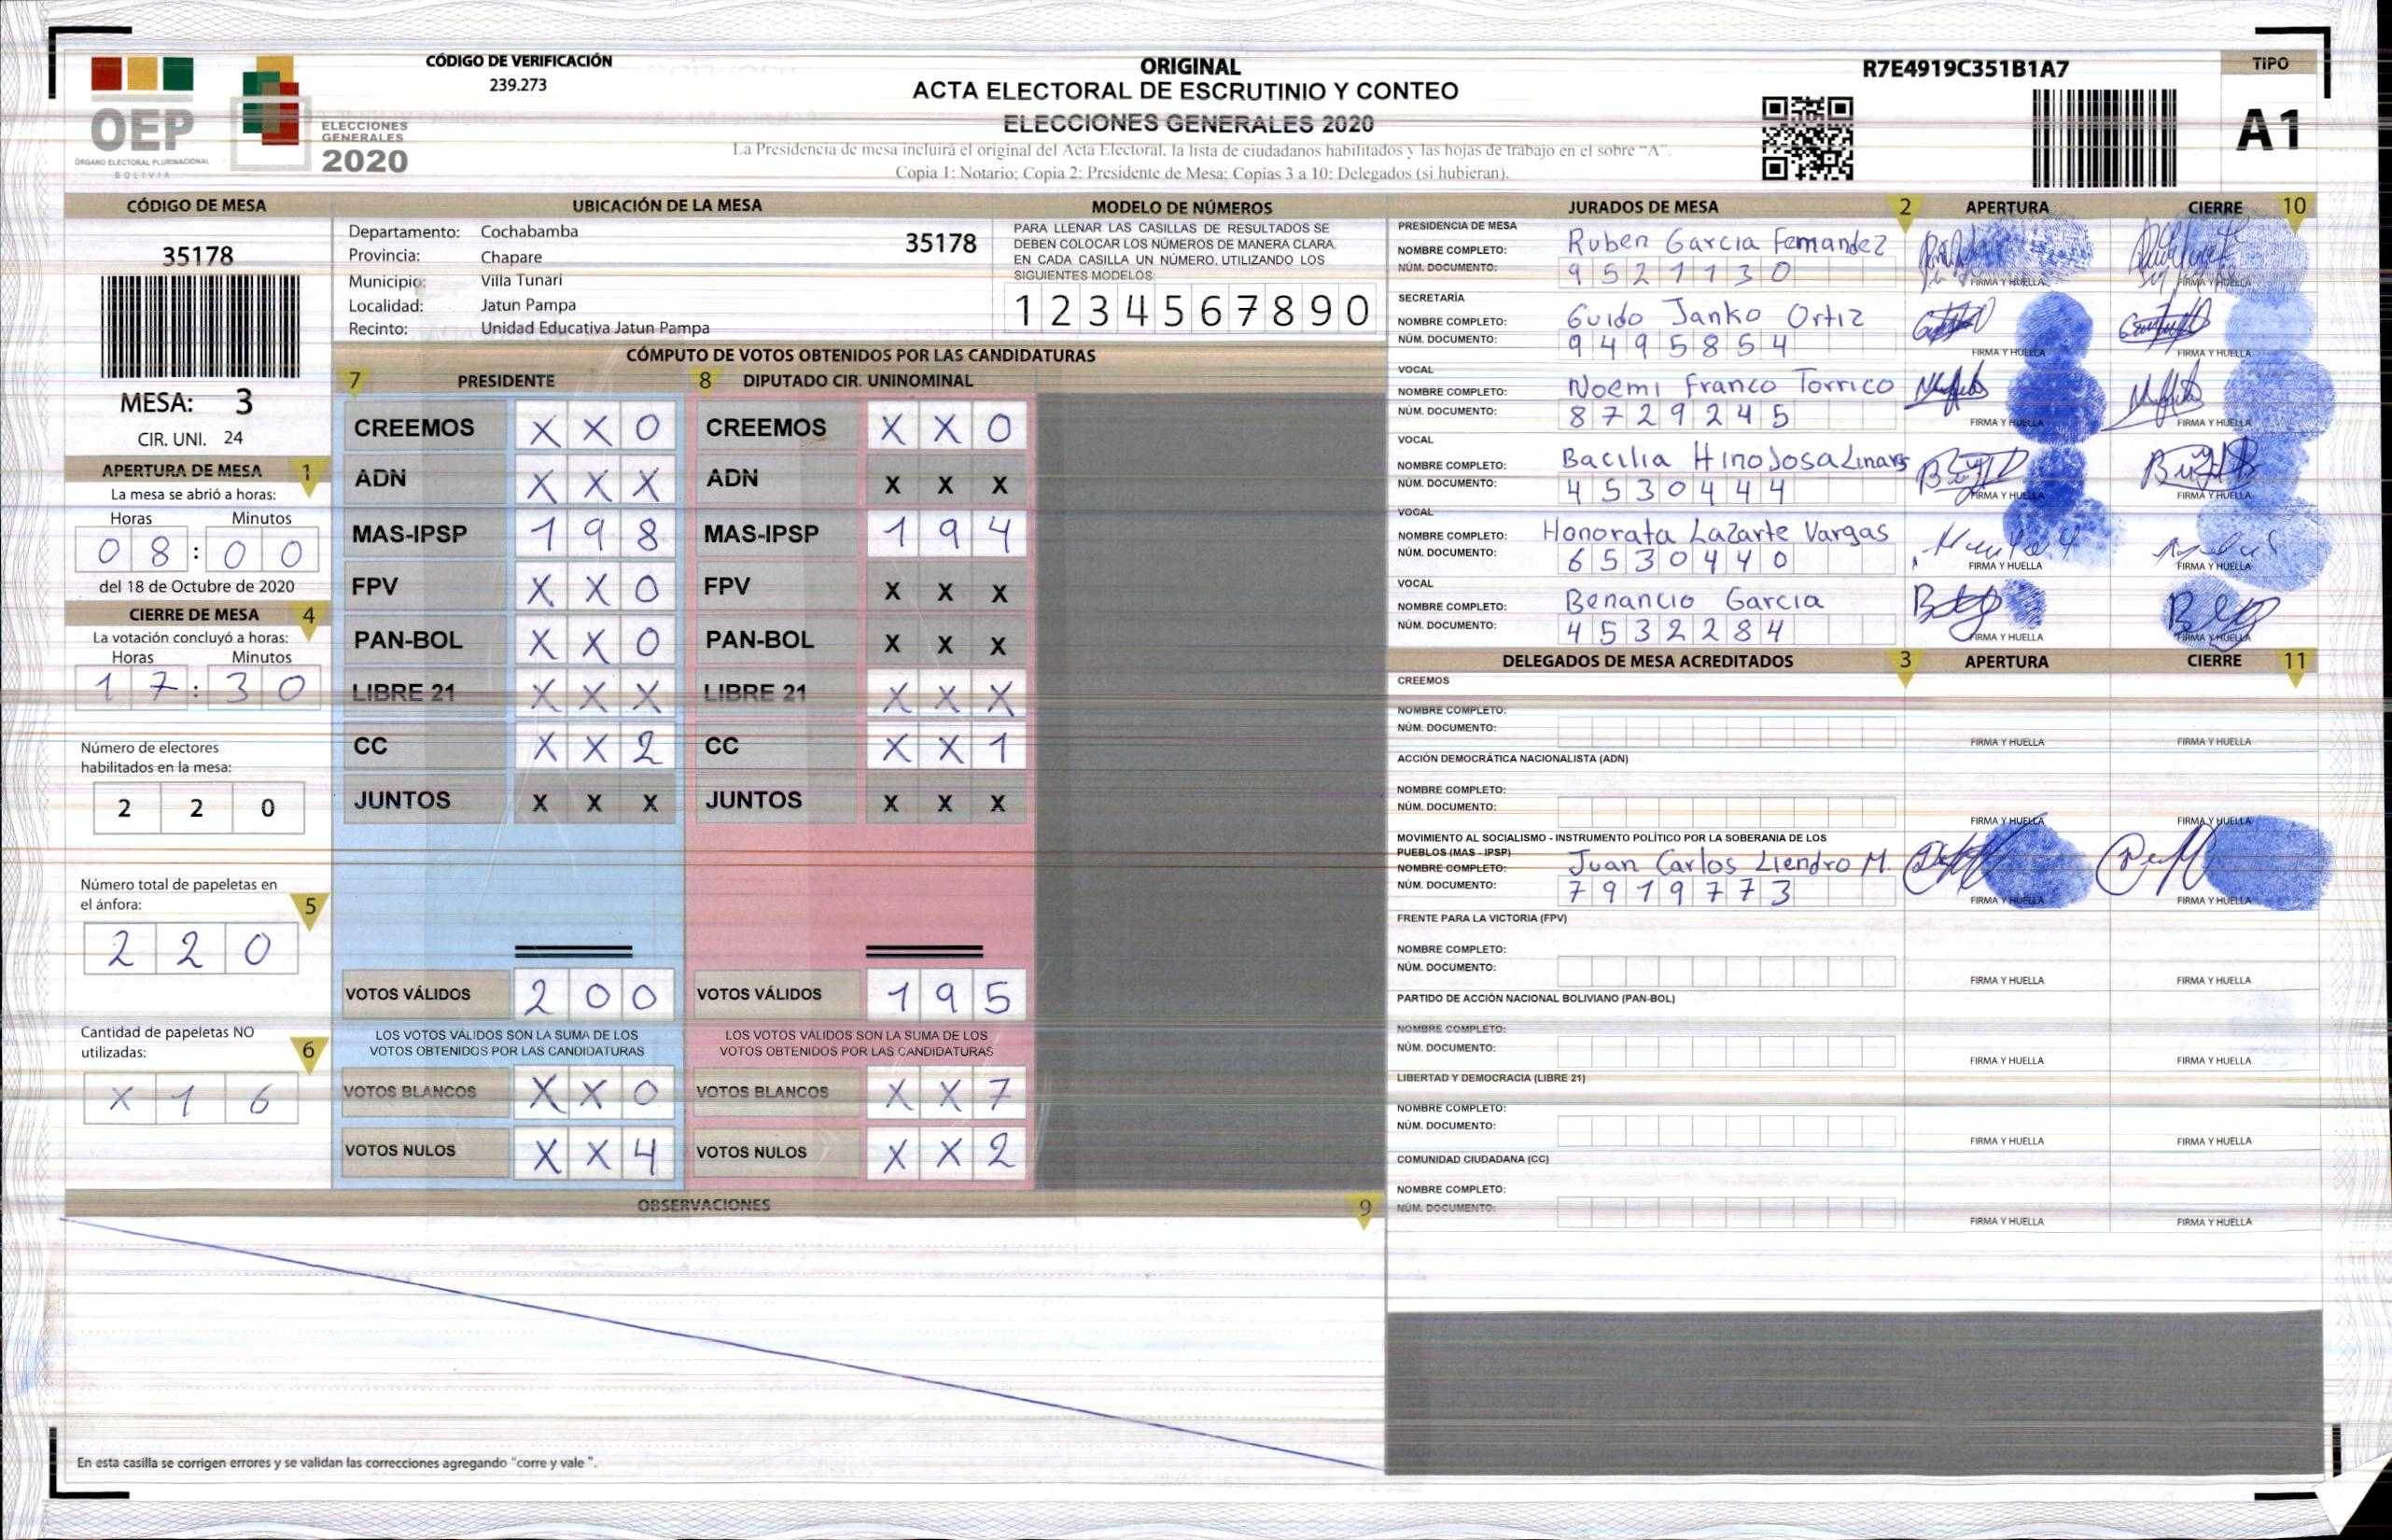 CÓDIGO DE VERIFICACIÓN
239.273
ORIGINAL
ACTA ELECTORAL DE ESCRUTINIO Y CONTEO
ELECCIONES GENERALES 2020
La Presidencia de mesa incluirá el original del Acta Electoral, la lista de ciudadanos habilitados y las hojas de trabajo en el sobre "A".
Copia 1: Notario; Copia 2: Presidente de Mesa; Copias 3 a 10: Delegados (si hubieran).
R7E4919C351B1A7
TIPO
A1
OEP
ÓRGANO ELECTORAL PLURINACIONAL
BOLIVIA
ELECCIONES
GENERALES
2020
CÓDIGO DE MESA
35178
MESA: 3
CIR. UNI. 24
UBICACIÓN DE LA MESA
Departamento: Cochabamba
35178
Provincia: Chapare
Municipio: Villa Tunari
Localidad: Jatun Pampa
Recinto: Unidad Educativa Jatun Pampa
MODELO DE NÚMEROS
PARA LLENAR LAS CASILLAS DE RESULTADOS SE
DEBEN COLOCAR LOS NÚMEROS DE MANERA CLARA.
EN CADA CASILLA UN NÚMERO, UTILIZANDO LOS
SIGUIENTES MODELOS:
1 2 3 4 5 6 7 8 9 0
APERTURA DE MESA 1
La mesa se abrió a horas:
Horas Minutos
0 8 : 0 0
del 18 de Octubre de 2020
CIERRE DE MESA 4
La votación concluyó a horas:
Horas Minutos
1 7 : 3 0
Número de electores
habilitados en la mesa:
2 2 0
Número total de papeletas en
el ánfora:
5
2 2 0
Cantidad de papeletas NO
utilizadas:
6
X 1 6
CÓMPUTO DE VOTOS OBTENIDOS POR LAS CANDIDATURAS
7 PRESIDENTE
CREEMOS X X 0
ADN X X X
MAS-IPSP 1 9 8
FPV X X 0
PAN-BOL X X 0
LIBRE 21 X X X
CC X X 2
JUNTOS X X X
VOTOS VÁLIDOS 2 0 0
LOS VOTOS VÁLIDOS SON LA SUMA DE LOS
VOTOS OBTENIDOS POR LAS CANDIDATURAS
VOTOS BLANCOS X X 0
VOTOS NULOS X X 4
8 DIPUTADO CIR. UNINOMINAL
CREEMOS X X 0
ADN X X X
MAS-IPSP 1 9 4
FPV X X X
PAN-BOL X X X
LIBRE 21 X X X
CC X X 1
JUNTOS X X X
VOTOS VÁLIDOS 1 9 5
LOS VOTOS VÁLIDOS SON LA SUMA DE LOS
VOTOS OBTENIDOS POR LAS CANDIDATURAS
VOTOS BLANCOS X X 7
VOTOS NULOS X X 2
OBSERVACIONES 9
En esta casilla se corrigen errores y se validan las correcciones agregando "corre y vale ".
JURADOS DE MESA 2 APERTURA CIERRE 10
PRESIDENCIA DE MESA
NOMBRE COMPLETO: Ruben Garcia Fernandez
NÚM. DOCUMENTO: 9521130
FIRMA Y HUELLA FIRMA Y HUELLA
SECRETARÍA
NOMBRE COMPLETO: Guido Janko Ortiz
NÚM. DOCUMENTO: 9495854
FIRMA Y HUELLA FIRMA Y HUELLA
VOCAL
NOMBRE COMPLETO: Noemi Franco Torrico
NÚM. DOCUMENTO: 8729245
FIRMA Y HUELLA FIRMA Y HUELLA
VOCAL
NOMBRE COMPLETO: Bacilia Hinojosa Linares
NÚM. DOCUMENTO: 4530444
FIRMA Y HUELLA FIRMA Y HUELLA
VOCAL
NOMBRE COMPLETO: Honorata Lazarte Vargas
NÚM. DOCUMENTO: 6530440
FIRMA Y HUELLA FIRMA Y HUELLA
VOCAL
NOMBRE COMPLETO: Benancio Garcia
NÚM. DOCUMENTO: 4532284
FIRMA Y HUELLA FIRMA Y HUELLA
DELEGADOS DE MESA ACREDITADOS 3 APERTURA CIERRE 11
CREEMOS
NOMBRE COMPLETO:
NÚM. DOCUMENTO:
FIRMA Y HUELLA FIRMA Y HUELLA
ACCIÓN DEMOCRÁTICA NACIONALISTA (ADN)
NOMBRE COMPLETO:
NÚM. DOCUMENTO:
FIRMA Y HUELLA FIRMA Y HUELLA
MOVIMIENTO AL SOCIALISMO - INSTRUMENTO POLÍTICO POR LA SOBERANIA DE LOS
PUEBLOS (MAS - IPSP)
NOMBRE COMPLETO: Juan Carlos Liendro M.
NÚM. DOCUMENTO: 7919773
FIRMA Y HUELLA FIRMA Y HUELLA
FRENTE PARA LA VICTORIA (FPV)
NOMBRE COMPLETO:
NÚM. DOCUMENTO:
FIRMA Y HUELLA FIRMA Y HUELLA
PARTIDO DE ACCIÓN NACIONAL BOLIVIANO (PAN-BOL)
NOMBRE COMPLETO:
NÚM. DOCUMENTO:
FIRMA Y HUELLA FIRMA Y HUELLA
LIBERTAD Y DEMOCRACIA (LIBRE 21)
NOMBRE COMPLETO:
NÚM. DOCUMENTO:
FIRMA Y HUELLA FIRMA Y HUELLA
COMUNIDAD CIUDADANA (CC)
NOMBRE COMPLETO:
NÚM. DOCUMENTO:
FIRMA Y HUELLA FIRMA Y HUELLA